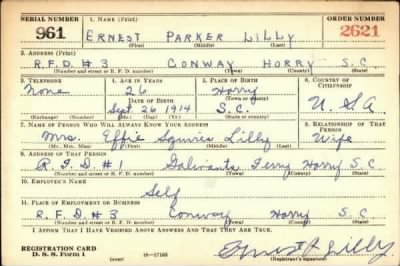 SERIAL NUMBER 1. NAME (Print) ORDER NUMBER
961 ERNEST PARKER LILLY 2621
(First) (Middle) (Last)
2. ADDRESS (Print)
R.F.D. #3 CONWAY HORRY S.C.
(Number and street or R. F. D. number) (Town) (County) (State)
3. TELEPHONE 4. AGE IN YEARS 5. PLACE OF BIRTH 6. COUNTRY OF CITIZENSHIP
None 26 Horry
DATE OF BIRTH (Town or county)
Sept 26 1914 S.C. U.S.A.
(Exchange) (Number) (Mo.) (Day) (Yr.) (State or country)
7. NAME OF PERSON WHO WILL ALWAYS KNOW YOUR ADDRESS 8. RELATIONSHIP OF THAT PERSON
Mrs. Effie Squires Lilly Wife
(Mr., Mrs., Miss) (First) (Middle) (Last)
9. ADDRESS OF THAT PERSON
R.F.D. #1 Galivants Ferry Horry S.C
(Number and street or R. F. D. number) (Town) (County) (State)
10. EMPLOYER'S NAME
Self
11. PLACE OF EMPLOYMENT OR BUSINESS
R.F.D. #3 Conway Horry S.C.
(Number and street or R. F. D. number) (Town) (County) (State)
I AFFIRM THAT I HAVE VERIFIED ABOVE ANSWERS AND THAT THEY ARE TRUE.
REGISTRATION CARD
D. S. S. Form 1 16—17105 Ernest P Lilly
(over) (Registrant's signature)